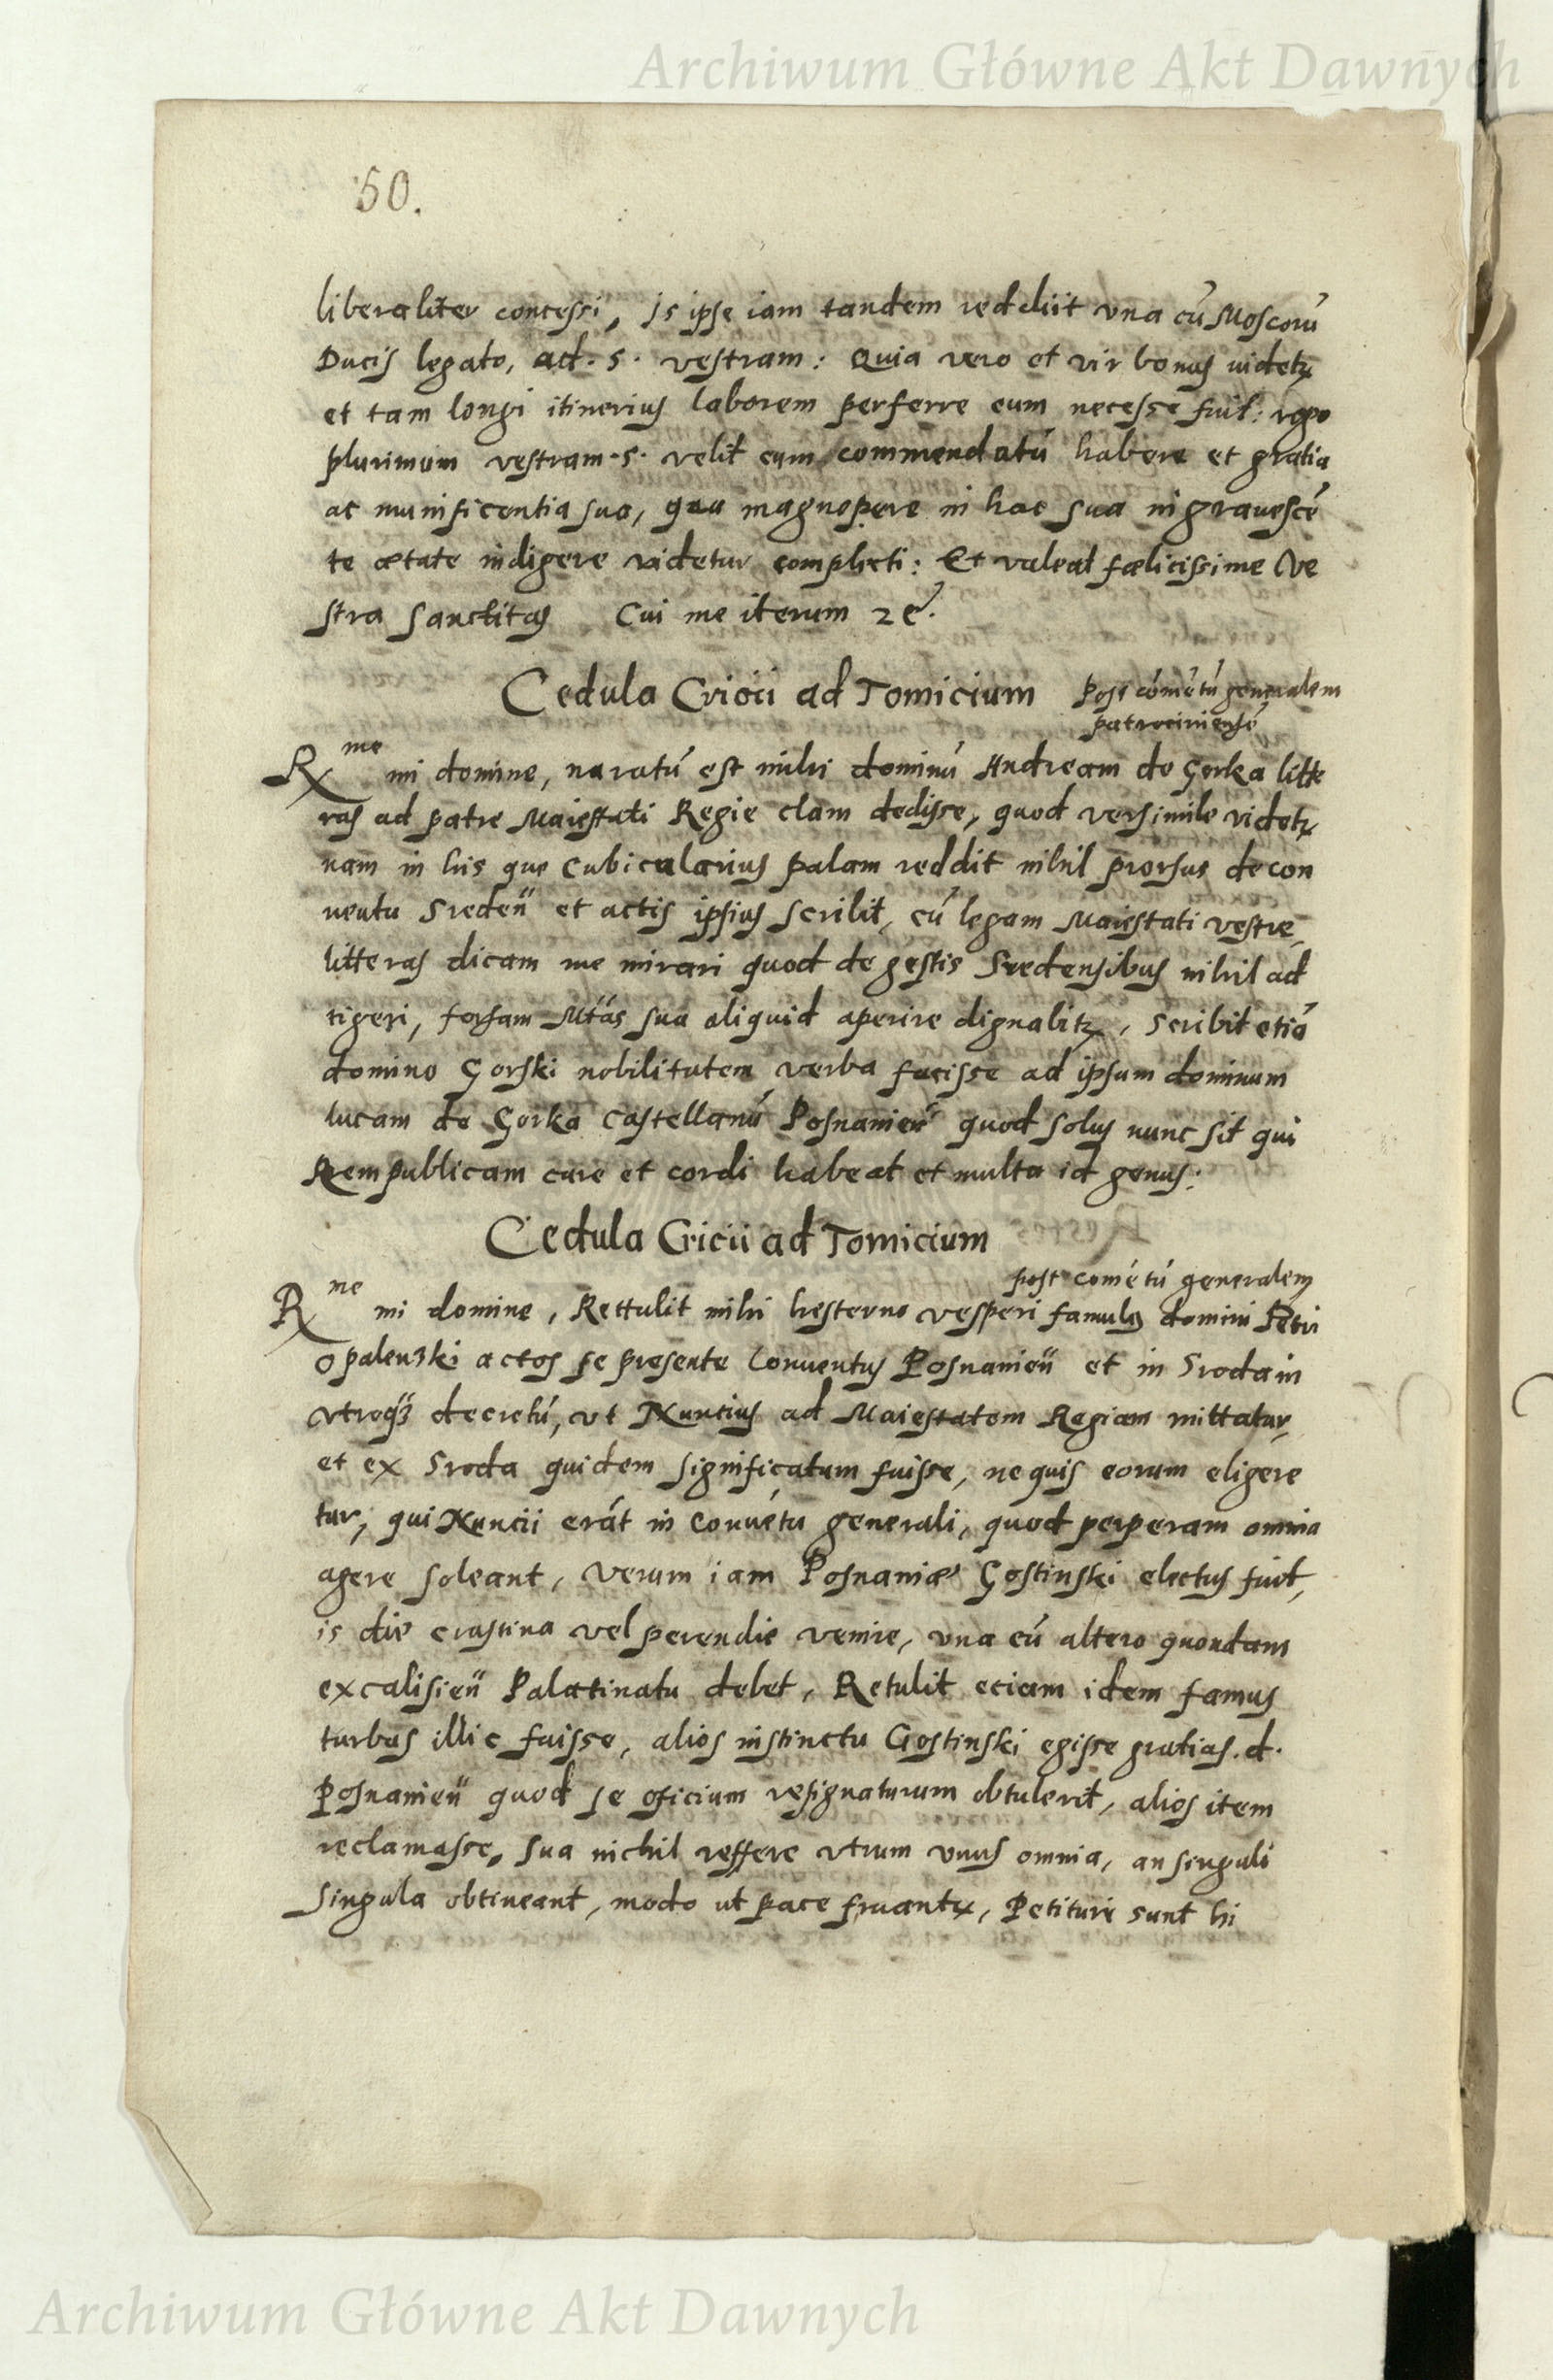 Archiwum Główne Akt Dawnych
50.
liberaliter concessi, Is ipse iam tandem reddiit vna cū Moscorū
Ducis legato, ad. S. vestram: Quia vero et vir bonus uidetꝝ
et tam longi itinerius laborem perferre eum necesse fuit: rogo
plurimum vestram. S. velit eum commendatū habere et gratia
ac munificentia sua, qua magnopere in hac sua ingrauescē
te ætate indigere videtur complecti: Et valeat fœlicissime Ve
stra Sanctitas Cui me iterum ꝛc.
Cedula Cricii ad Tomicium post comētū generalem
Rme mi domine, naratū est mihi dominū Andream de Gorka litte
ras ad patre Maiestati Regie clam dedisse, quod versimile videtꝝ
nam in his que Cubicularius palam reddit nihil prorsus de con
uentu Sredeñ et actis ipsius scribit, cū legam Maiestati vestre
litteras dicam me mirari quod de gestis Sredensibus nihil ad
tigeri, forsam Mtas sua aliquid aperire dignabitꝝ, Scribit etiā
domino Gorski nobilitatem verba fecisse ad ipsum dominum
lucam de Gorka Castellanū Posnanieñ quod solus nunc sit qui
Rempublicam cure et cordi habeat et multa id genus:
Cedula Cricii ad Tomicium
post comētū generalem
Rme mi domine, Rettulit mihi hesterno vesperi famulus domini Petri
opalenski actos se presente Conuentus Posnanieñ et in Sroda in
vtroqꝫ decretū, vt Nuncius ad Maiestatem Regiam mittatur,
et ex Sroda quidem significatum fuisse, ne quis eorum eligere
tur, qui Nuncii erāt in Conuētu generali, quod perperam omnia
agere soleant, verum iam Posnaniæ Gostinski electus fuit,
is die crastina vel perendie venire, vna cū altero quondam
ex calisieñ Palatinatu debet, Retulit eciam idem famus
turbas illic fuisse, alios instinctu Gostinski egisse gratias. d.
Posnanieñ quod se oficium resignaturum obtulerit, alios item
reclamasse, sua nichil reffere vtrum vnus omnia, an singuli
singula obtineant, modo ut pace fruantꝝ, Petituri sunt hi
Archiwum Główne Akt Dawnych